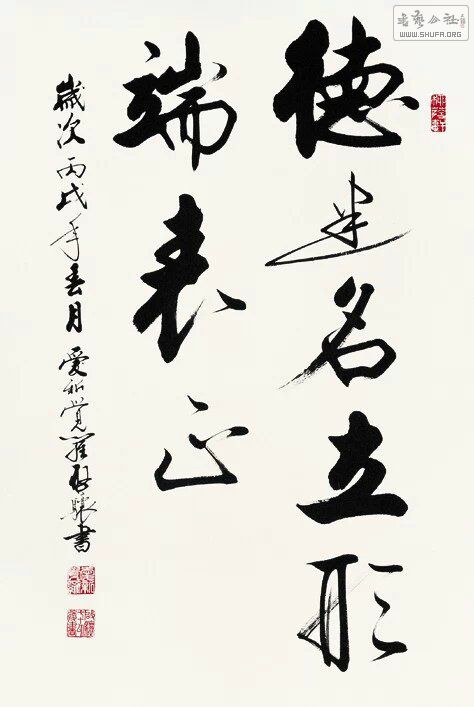 德建名立形
端表正
歲次丙戌年春月愛新覺羅啓驤書
書藝公社
WWW.SHUFA.ORG